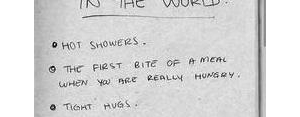 IN THE WORLD.
• HOT SHOWERS.
• THE FIRST BITE OF A MEAL
WHEN YOU ARE REALLY HUNGRY.
• TIGHT HUGS.